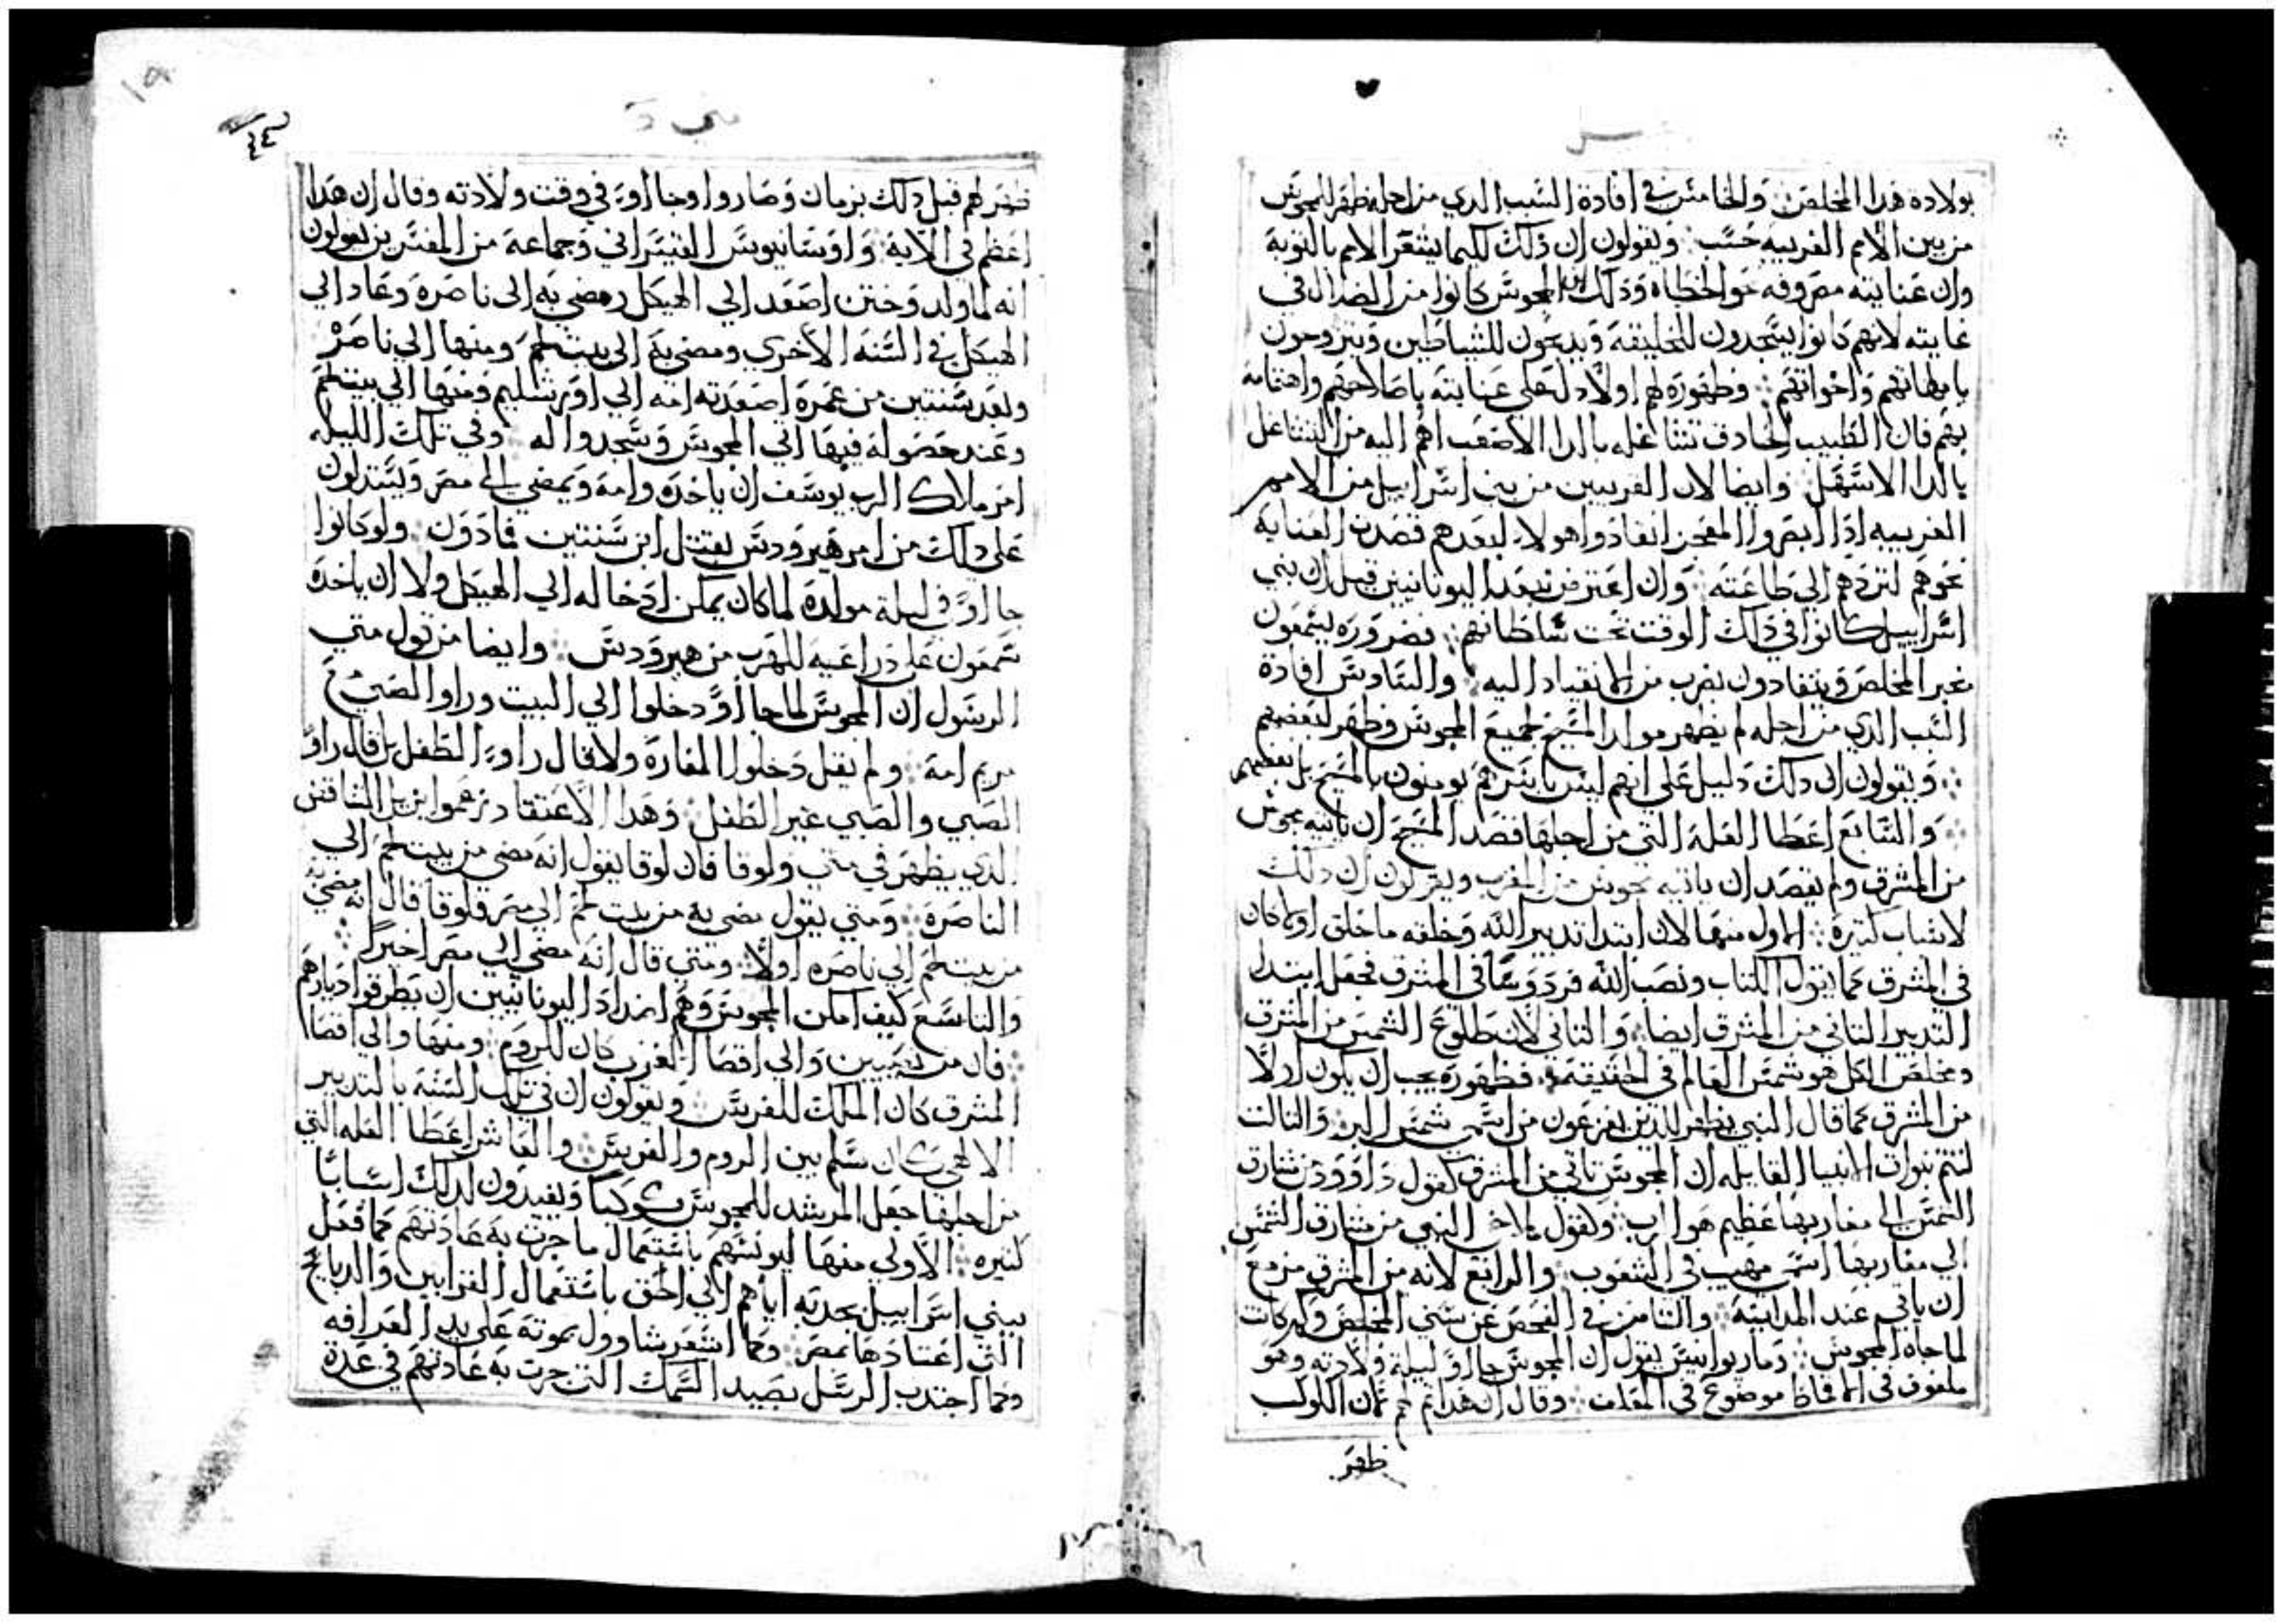 بولادة هدا المخلص والخامس في افادة السبب الدي من اجله ظهر للمجوس
من بين الامم الغريبه حسب ويقولون ان ذلك كيما يشعر الامم بالتوبة
وان عنايته مصروفه نحو الخطاه وذلك ان المجوس كانوا من الضلال في
غايته لانهم كانوا يسجدون للخليقة ويدبحون للشياطين ويتزوجون
بامهاتهم واخواتهم وظهوره لهم اولا دل على عنايته باصلاحهم واهتمامه
بهم فان الطبيب الحادق تشاغله بالدا الاصعب اهم اليه من التشاغل
بالدا الاسهل وايضا لان القريبين من بني اسراييل من الامم
الغريبه ادا ابصروا المعجز انقادوا هولا لبعدهم قصدت العنايه
نحوهم لتردهم الى طاعته وان اعترض بعد اليونانيين قبل ان بني
اسراييل كانوا في ذلك الوقت تحت سلطانهم فضروره يسمعون
بخبر المخلص وينقادون بقرب من الانقياد اليه والسادس افادة
السبب الدي من اجله لم يظهر مولد المسيح لجميع المجوس وظهر لبعضهم
ويقولون ان دلك دليل على انهم ليس باسرهم يومنون بالمسيح بل بعضهم
والسابع اعطا العلة التي من اجلها قصد المسيح ان ياتيه مجوس
من المشرق ولم يقصد ان ياتيه مجوس من المغرب ويقولون ان دلك
لاسباب كتيرة الاول منها لان ابتدا تدبير الله وخلقه ما خلق اولا كان
في المشرق كما يقول الكتاب ونصب الله فردوسا في المشرق فجعل ابتدا
التدبير التاني من المشرق ايضا والتاني لان طلوع الشمس من المشرق
ومخلص الكل هو شمس العالم في الحقيقة فظهوره يجب ان يكون اولا
من المشرق كما قال النبي يظهر للدين يفزعون من اسمي شمس البر والتالت
لتتم نبوات الانبيا القايله ان المجوس تاتي من المشرق كقول داوود من مشارق
الشمس الى مغاربها عظيم هو الرب وكقول ملاخي النبي من مشارق الشمس
الي مغاربها اسمي مهيب في الشعوب والرابع لانه من المشرق مزمع
ان ياتي عند المداينة والتامن في الفحص عن سني المخلص وكم كانت
لما جاه المجوس ومار يوانيس يقول ان المجوس جاوا ليلة ولادته وهو
ملفوف في القماط موضوع في المعلف وقال ان هدا تم لهم لان الكوكب
ظهر
ظهر لهم قبل دلك بزمان وصاروا وجاووا في وقت ولادته وقال ان هدا
اعظم في الاية واوسانيوس القيسراني وجماعة من المفسرين يقولون
انه لما ولد وختن اصعد الي الهيكل ومضي به الى ناصره وعاد الي
الهيكل في السنه الاخري ومضي به الى بيت لحم ومنها الي ناصره
وبعد سنتين من عمره اصعدته امه الي اورشليم ومنها الي بيت لحم
وعند حصوله فيها اتي المجوس وسجدوا له وفي تلك الليله
امر ملاك الرب يوسف ان ياخده وامه ويمضي الى مصر ويستدلون
على دلك من امر هيرودس بقتل ابن سنتين فما دون ولو كانوا
جاووا في ليلة مولده لما كان يمكن ادخاله الي الهيكل ولا ان ياخده
شمعون على دراعيه للهرب من هيرودس وايضا من قول متي
الرسول ان المجوس لما جاوا دخلوا الي البيت وراوا الصبي مع
مريم امه ولم يقل دخلوا المغارة ولا قال راوا الطفل بل قال راوا
الصبي والصبي غير الطفل وهدا الاعتقاد زعموا يزيل التناقض
الدي يظهر في متي ولوقا فان لوقا يقول انه مضي من بيت لحم الي
الناصرة ومتي يقول مضي به من بيت لحم الي مصر فلوقا قال انه مضي به
من بيت لحم الي ناصره اولا ومتي قال انه مضي الى مصر اخيرا
والتاسع كيف امكن المجوس وهم اضداد اليونانيين ان يطرقوا ديارهم
فان من نصيبين والي اقصا الغرب كان للروم ومنها والي اقصا
المشرق كان الملك للفرس ويقولون ان في تلك السنة بالتدبير
الالهي كان سلم بين الروم والفرس والعاشر اعطا العله التي
من اجلها جعل المرشد للمجوس كوكبا ويفيدون لدلك اسبابا
كتيره الاولي منها ليونسهم باستعمال ما جرت به عادتهم كما فعل
ببني اسراييل بجدبه اياهم الي الحق باستعمال القرابين والدبايح
التي اعتادها بمصر وكما اشعر شاوول بموته على يد العرافه
وكما اجتدب الرسل بصيد السمك التي جرت به عادتهم في عدة